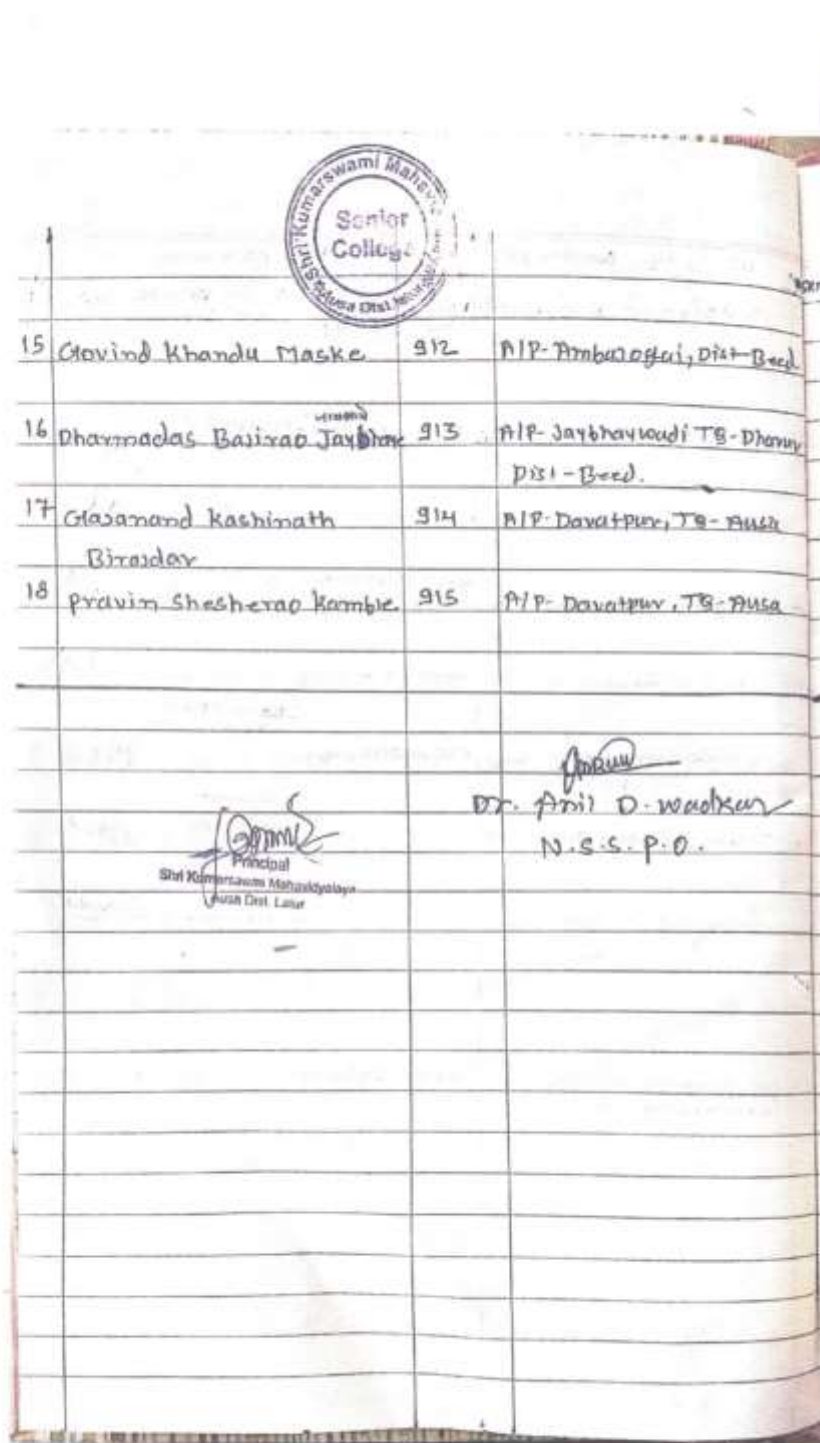 Shri Kumarswami Mahavi
Senior
College
Ausa Dist. Latur
15 Govind Khandu Maske 912 A/P- Ambajogai, Dist- Beed
16 Dharmadas Bajirao Jaybhaye 913 A/P- Jaybhaywadi Tq- Dharur
Dist - Beed.
17 Gajanand Kashinath 914 A/P- Davatpur, Tq- Ausa
Birajdar
18 Pravin Shesherao Kamble. 915 A/P- Davatpur, Tq- Ausa
Dr. Anil D. Wadkar
N.S.S. P.O.
Principal
Shri Kumarswami Mahavidyalaya
Ausa Dist. Latur